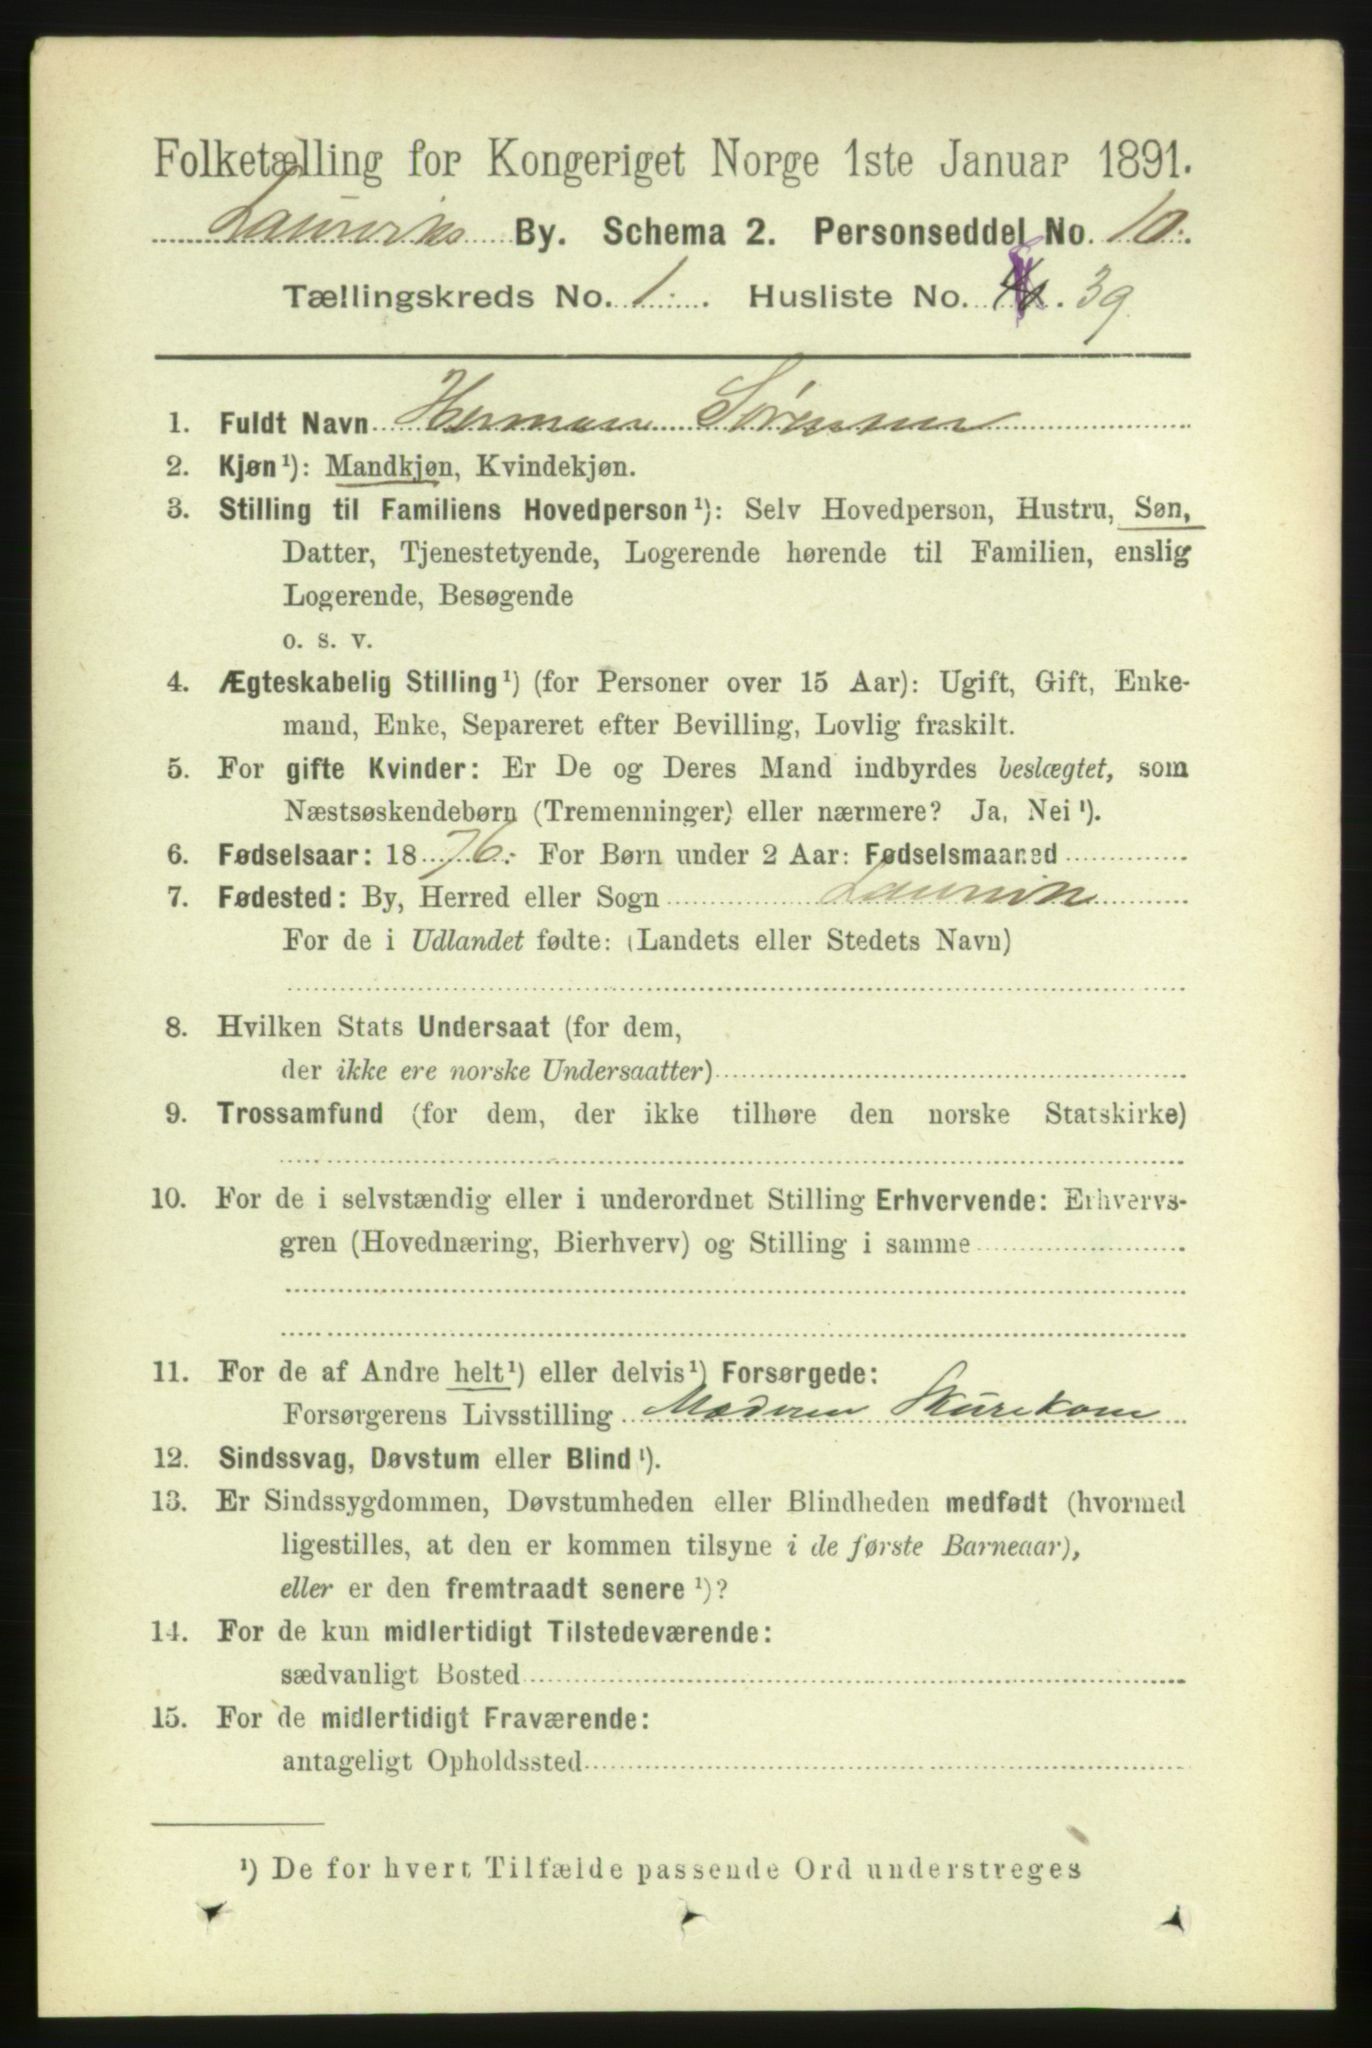 Folketælling for Kongeriget Norge 1ste Januar 1891.
Laurviks By. Schema 2. Personseddel No. 10.
Tællingskreds No. 1. Husliste No. 39
1. Fuldt Navn Herman Sørensen
2. Kjøn¹): Mandkjøn, Kvindekjøn.
3. Stilling til Familiens Hovedperson¹): Selv Hovedperson, Hustru, Søn,
Datter, Tjenestetyende, Logerende hørende til Familien, enslig
Logerende, Besøgende
o. s. v.
4. Ægteskabelig Stilling¹) (for Personer over 15 Aar): Ugift, Gift, Enke-
mand, Enke, Separeret efter Bevilling, Lovlig fraskilt.
5. For gifte Kvinder: Er De og Deres Mand indbyrdes beslægtet, som
Næstsøskendebørn (Tremenninger) eller nærmere? Ja, Nei¹).
6. Fødselsaar: 1876. For Børn under 2 Aar: Fødselsmaaned
7. Fødested: By, Herred eller Sogn Laurvik
For de i Udlandet fødte: (Landets eller Stedets Navn)
8. Hvilken Stats Undersaat (for dem,
der ikke ere norske Undersaatter)
9. Trossamfund (for dem, der ikke tilhøre den norske Statskirke)
10. For de i selvstændig eller i underordnet Stilling Erhvervende: Erhvervs-
gren (Hovednæring, Bierhverv) og Stilling i samme
11. For de af Andre helt¹) eller delvis¹) Forsørgede:
Forsørgerens Livsstilling Moderen Skurekone
12. Sindssvag, Døvstum eller Blind¹).
13. Er Sindssygdommen, Døvstumheden eller Blindheden medfødt (hvormed
ligestilles, at den er kommen tilsyne i de første Barneaar),
eller er den fremtraadt senere¹)?
14. For de kun midlertidigt Tilstedeværende:
sædvanligt Bosted
15. For de midlertidigt Fraværende:
antageligt Opholdssted
¹) De for hvert Tilfælde passende Ord understreges